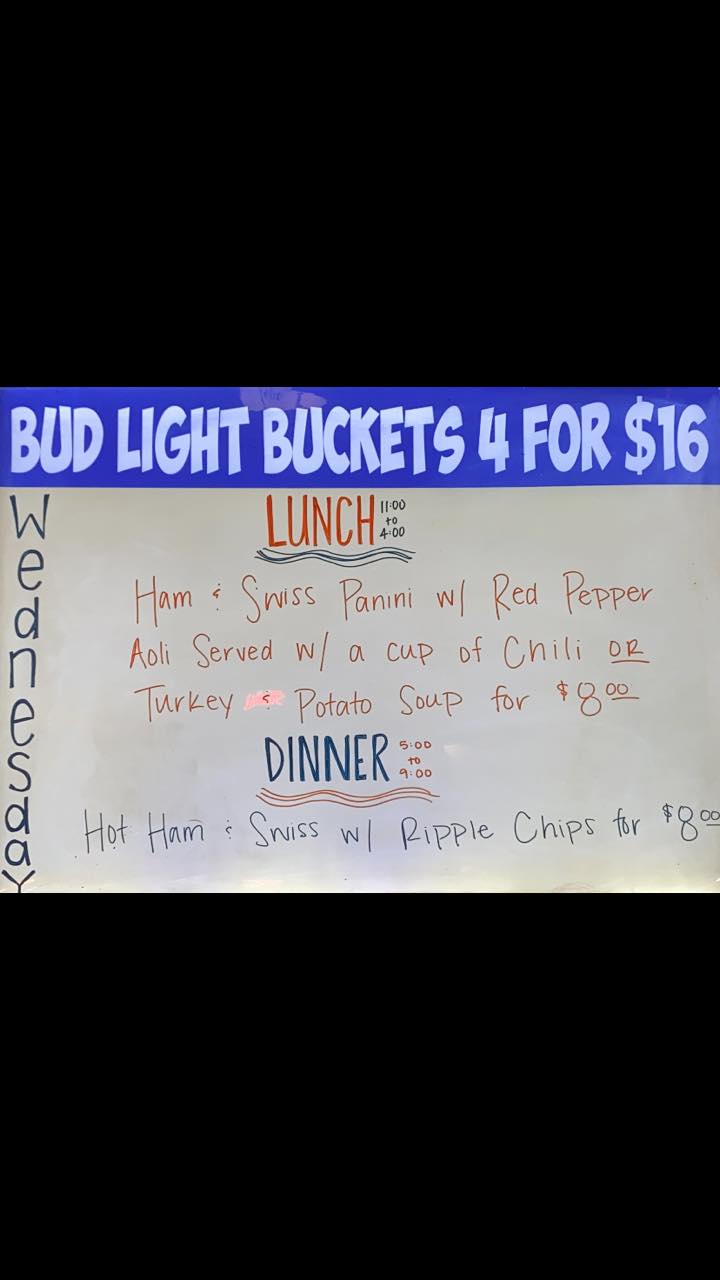 BUD LIGHT BUCKETS 4 FOR $16
Wednesday
LUNCH 11:00 to 4:00
Ham & Swiss Panini w/ Red Pepper
Aoli Served w/ a cup of Chili OR
Turkey & Potato Soup for $8.00
DINNER 5:00 to 9:00
Hot Ham & Swiss w/ Ripple Chips for $8.00